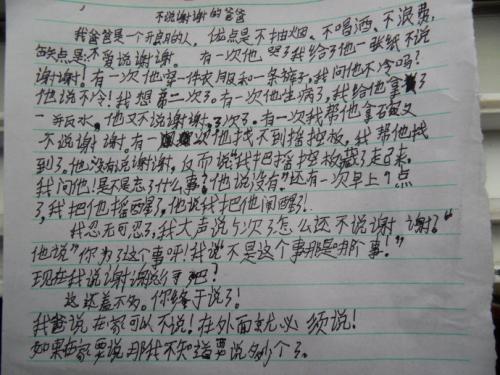 不说谢谢的爸爸
我爸爸是一个开朗的人，优点是不抽烟、不喝酒、不浪费，
缺点是：不爱说谢谢。有一次他哭了我给了他一张纸不说
谢谢！有一次他穿一件衣服和一条裤子，我问他不冷吗？
他说不冷！我想第二次了。有一次他生病了，我给他拿了
一杯水，他又不说谢谢，3次了。有一次我帮他拿石又
不说谢谢。有一次他找不到摇控板，我帮他找
到了。他没有说谢谢，反而说"我把摇控板藏了走了来。
我问他！是不是忘了什么事？他说没有"还有一次早上9点
了，我把他摇醒了，他说我把他闹醒！
我忍无可忍了，我大声说5次了怎么还不说谢谢？"
他说"你为了这个事呼！我说不是这个事那是哪个事！"
现在我说谢谢行了吧？
这还差不多。你终于说了！
我爸说在家可以不说！在外面就必须说！
如果在家要说那我不知道要说多少个了。